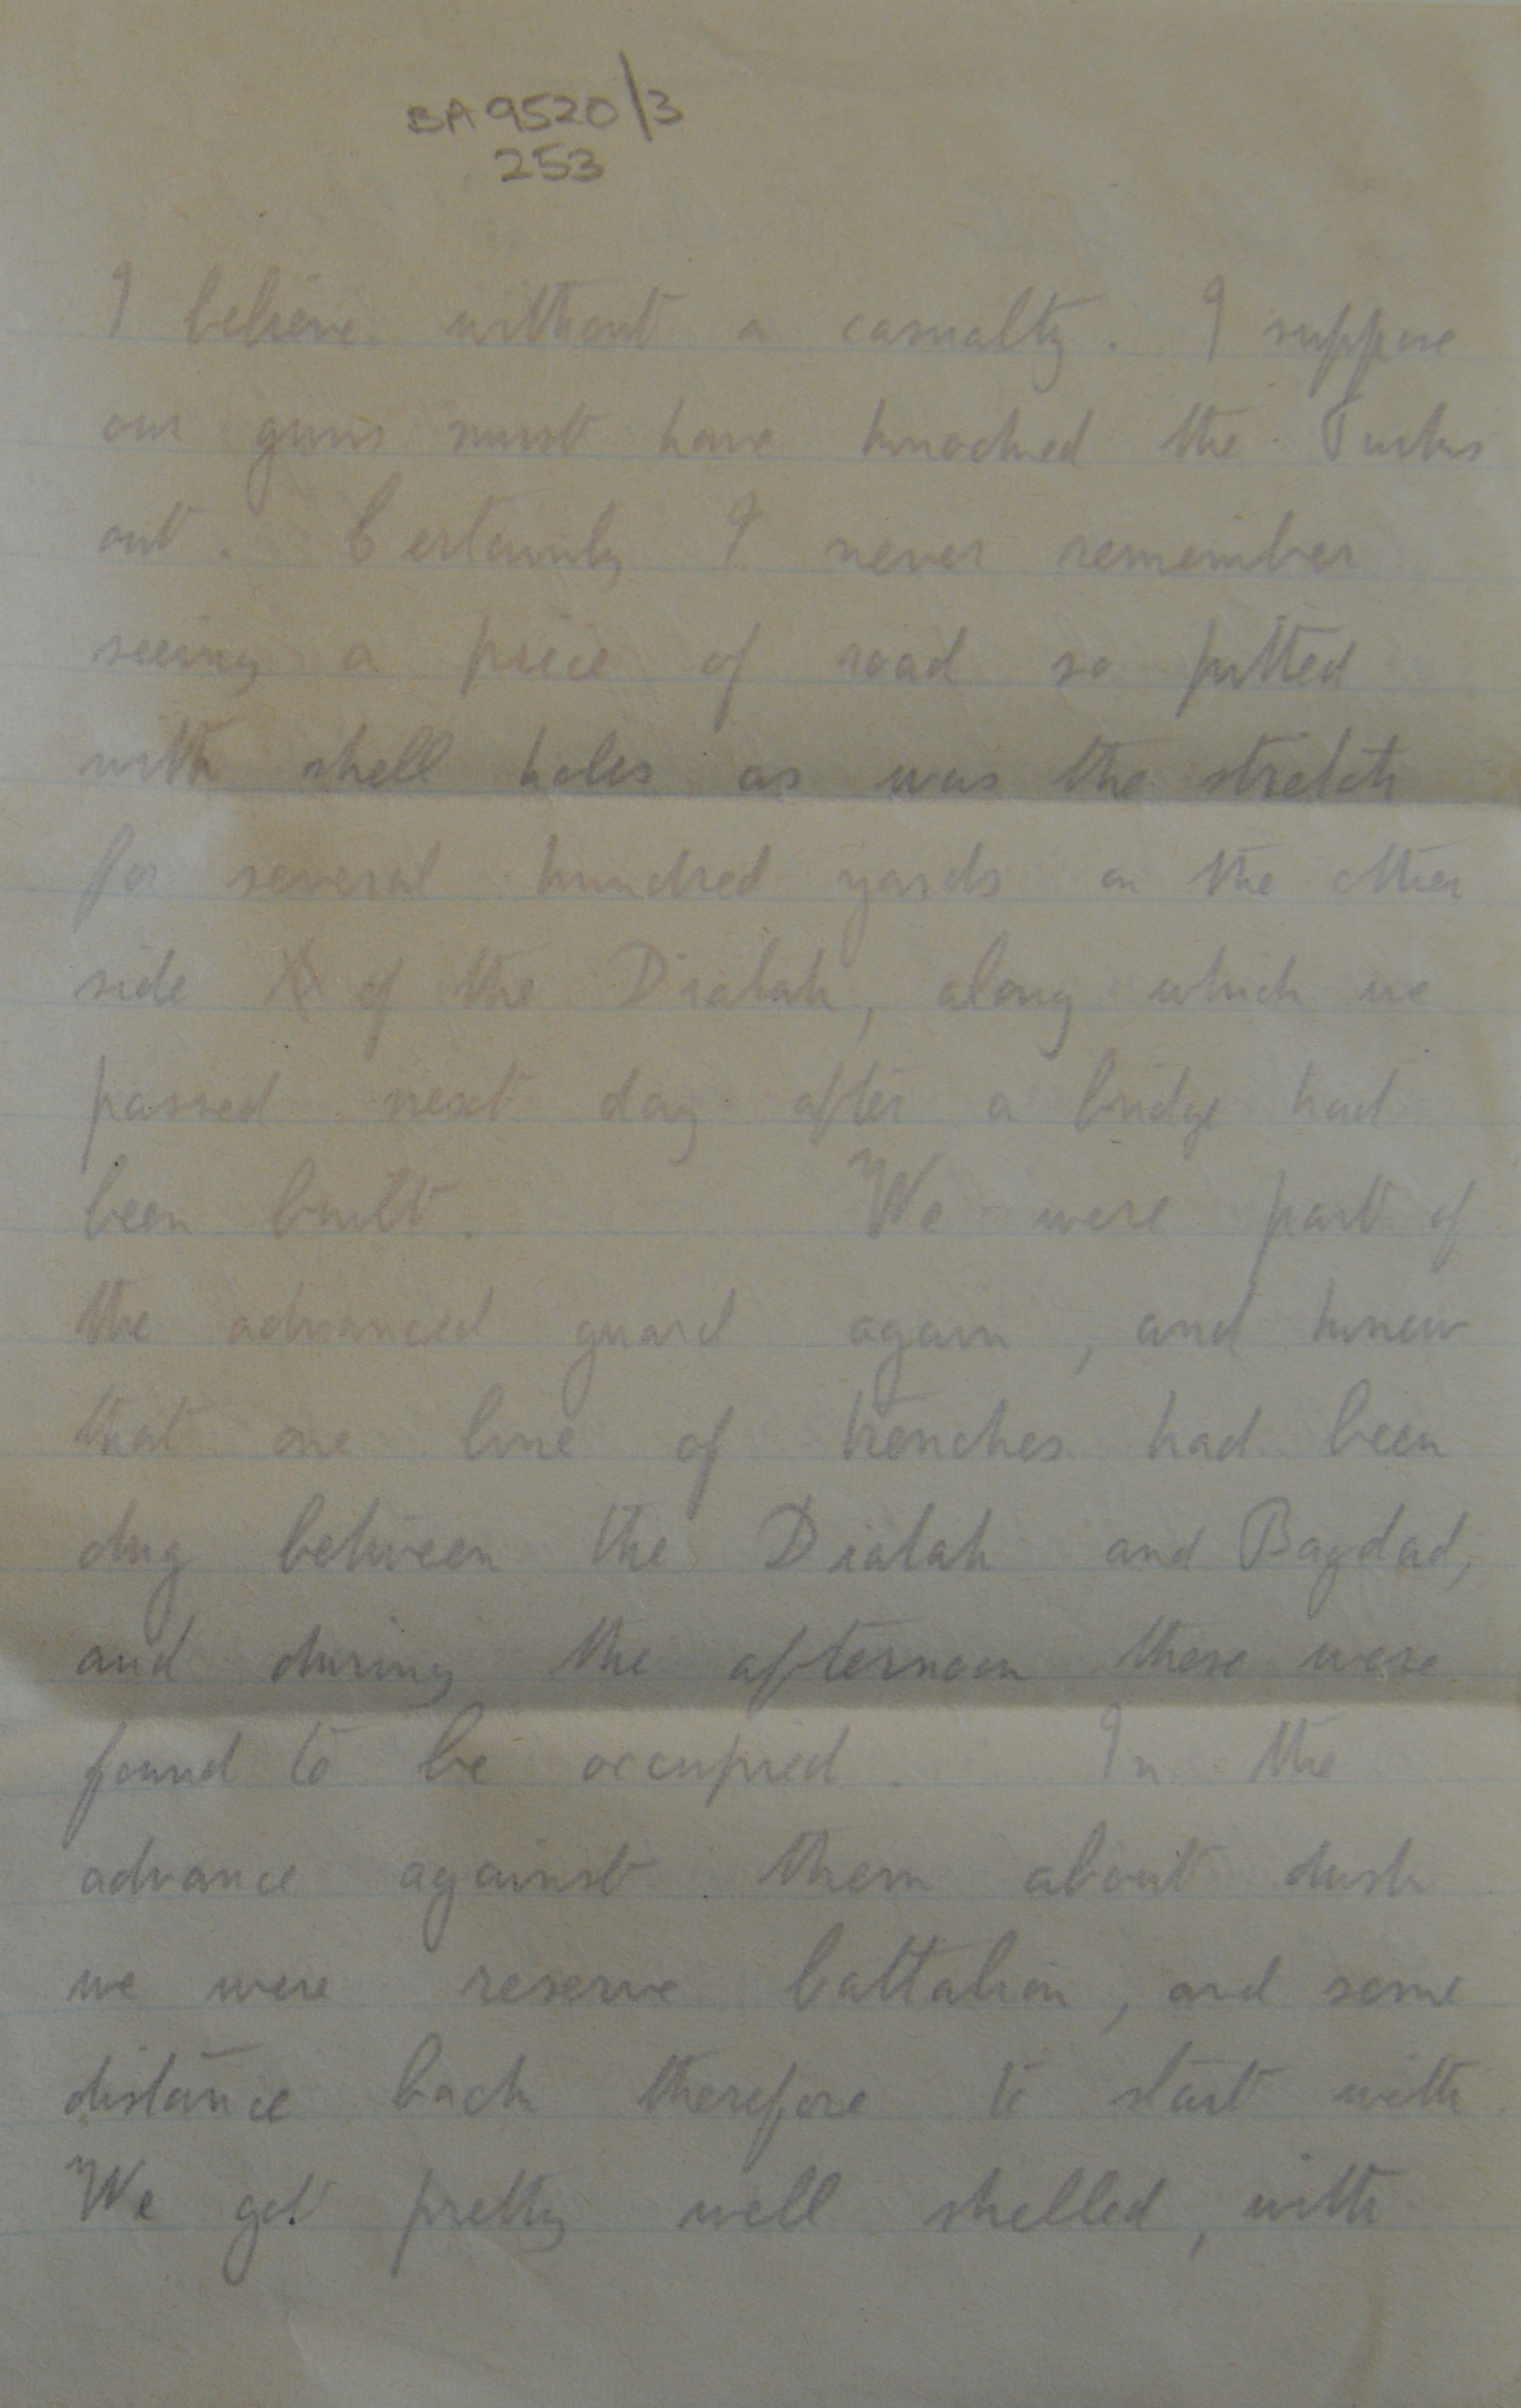 BA9520/3
253
I believe without a casualty. I suppose
our guns must have knocked the Turks
out. Certainly I never remember
seeing a piece of road so pitted
with shell holes as was the stretch
for several hundred yards on the other
side of the Dialah, along which we
passed next day after a bridge had
been built. We were part of
the advanced guard again, and knew
that one line of trenches had been
dug between the Dialah and Bagdad,
and during the afternoon these were
found to be occupied. In the
advance against them about dusk
we were reserve battalion, and some
distance back therefore to start with.
We got pretty well shelled, with